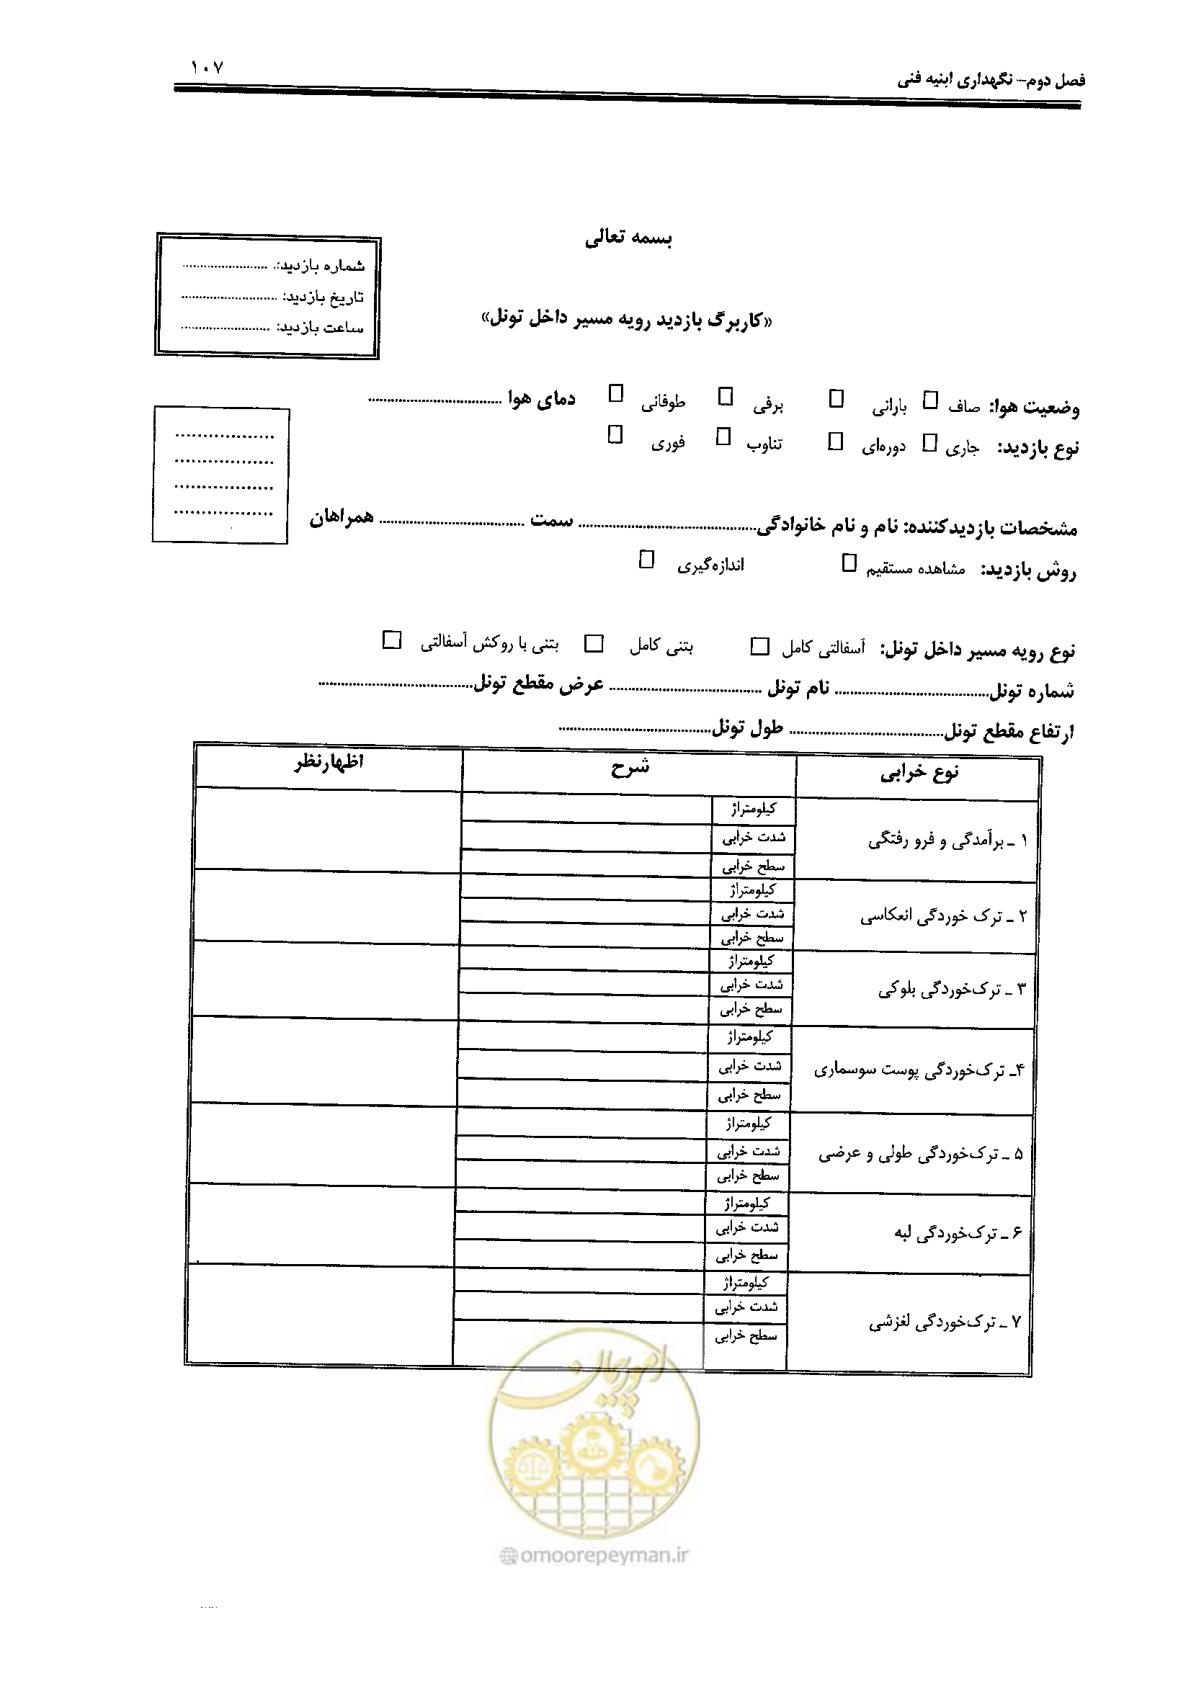 فصل دوم– نگهداری ابنیه فنی
۱۰۷
بسمه تعالی
شماره بازدید: ........................
تاریخ بازدید: ........................
ساعت بازدید: ........................
«کاربرگ بازدید رویه مسیر داخل تونل»
وضعیت هوا: صاف □ بارانی □ برفی □ طوفانی □ دمای هوا ................................
نوع بازدید: جاری □ دوره‌ای □ تناوب □ فوری □
مشخصات بازدیدکننده: نام و نام خانوادگی............................................ سمت .................................... همراهان
........................
........................
........................
........................
روش بازدید: مشاهده مستقیم □ اندازه‌گیری □
نوع رویه مسیر داخل تونل: آسفالتی کامل □ بتنی کامل □ بتنی با روکش آسفالتی □
شماره تونل...................................... نام تونل ...................................... عرض مقطع تونل......................................
ارتفاع مقطع تونل...................................... طول تونل......................................
نوع خرابی شرح اظهارنظر
۱ ـ برآمدگی و فرو رفتگی
کیلومتراژ
شدت خرابی
سطح خرابی
۲ ـ ترک خوردگی انعکاسی
کیلومتراژ
شدت خرابی
سطح خرابی
۳ ـ ترک‌خوردگی بلوکی
کیلومتراژ
شدت خرابی
سطح خرابی
۴ـ ترک‌خوردگی پوست سوسماری
کیلومتراژ
شدت خرابی
سطح خرابی
۵ ـ ترک‌خوردگی طولی و عرضی
کیلومتراژ
شدت خرابی
سطح خرابی
۶ ـ ترک‌خوردگی لبه
کیلومتراژ
شدت خرابی
سطح خرابی
۷ ـ ترک‌خوردگی لغزشی
کیلومتراژ
شدت خرابی
سطح خرابی
امور پیمان
omoorepeyman.ir